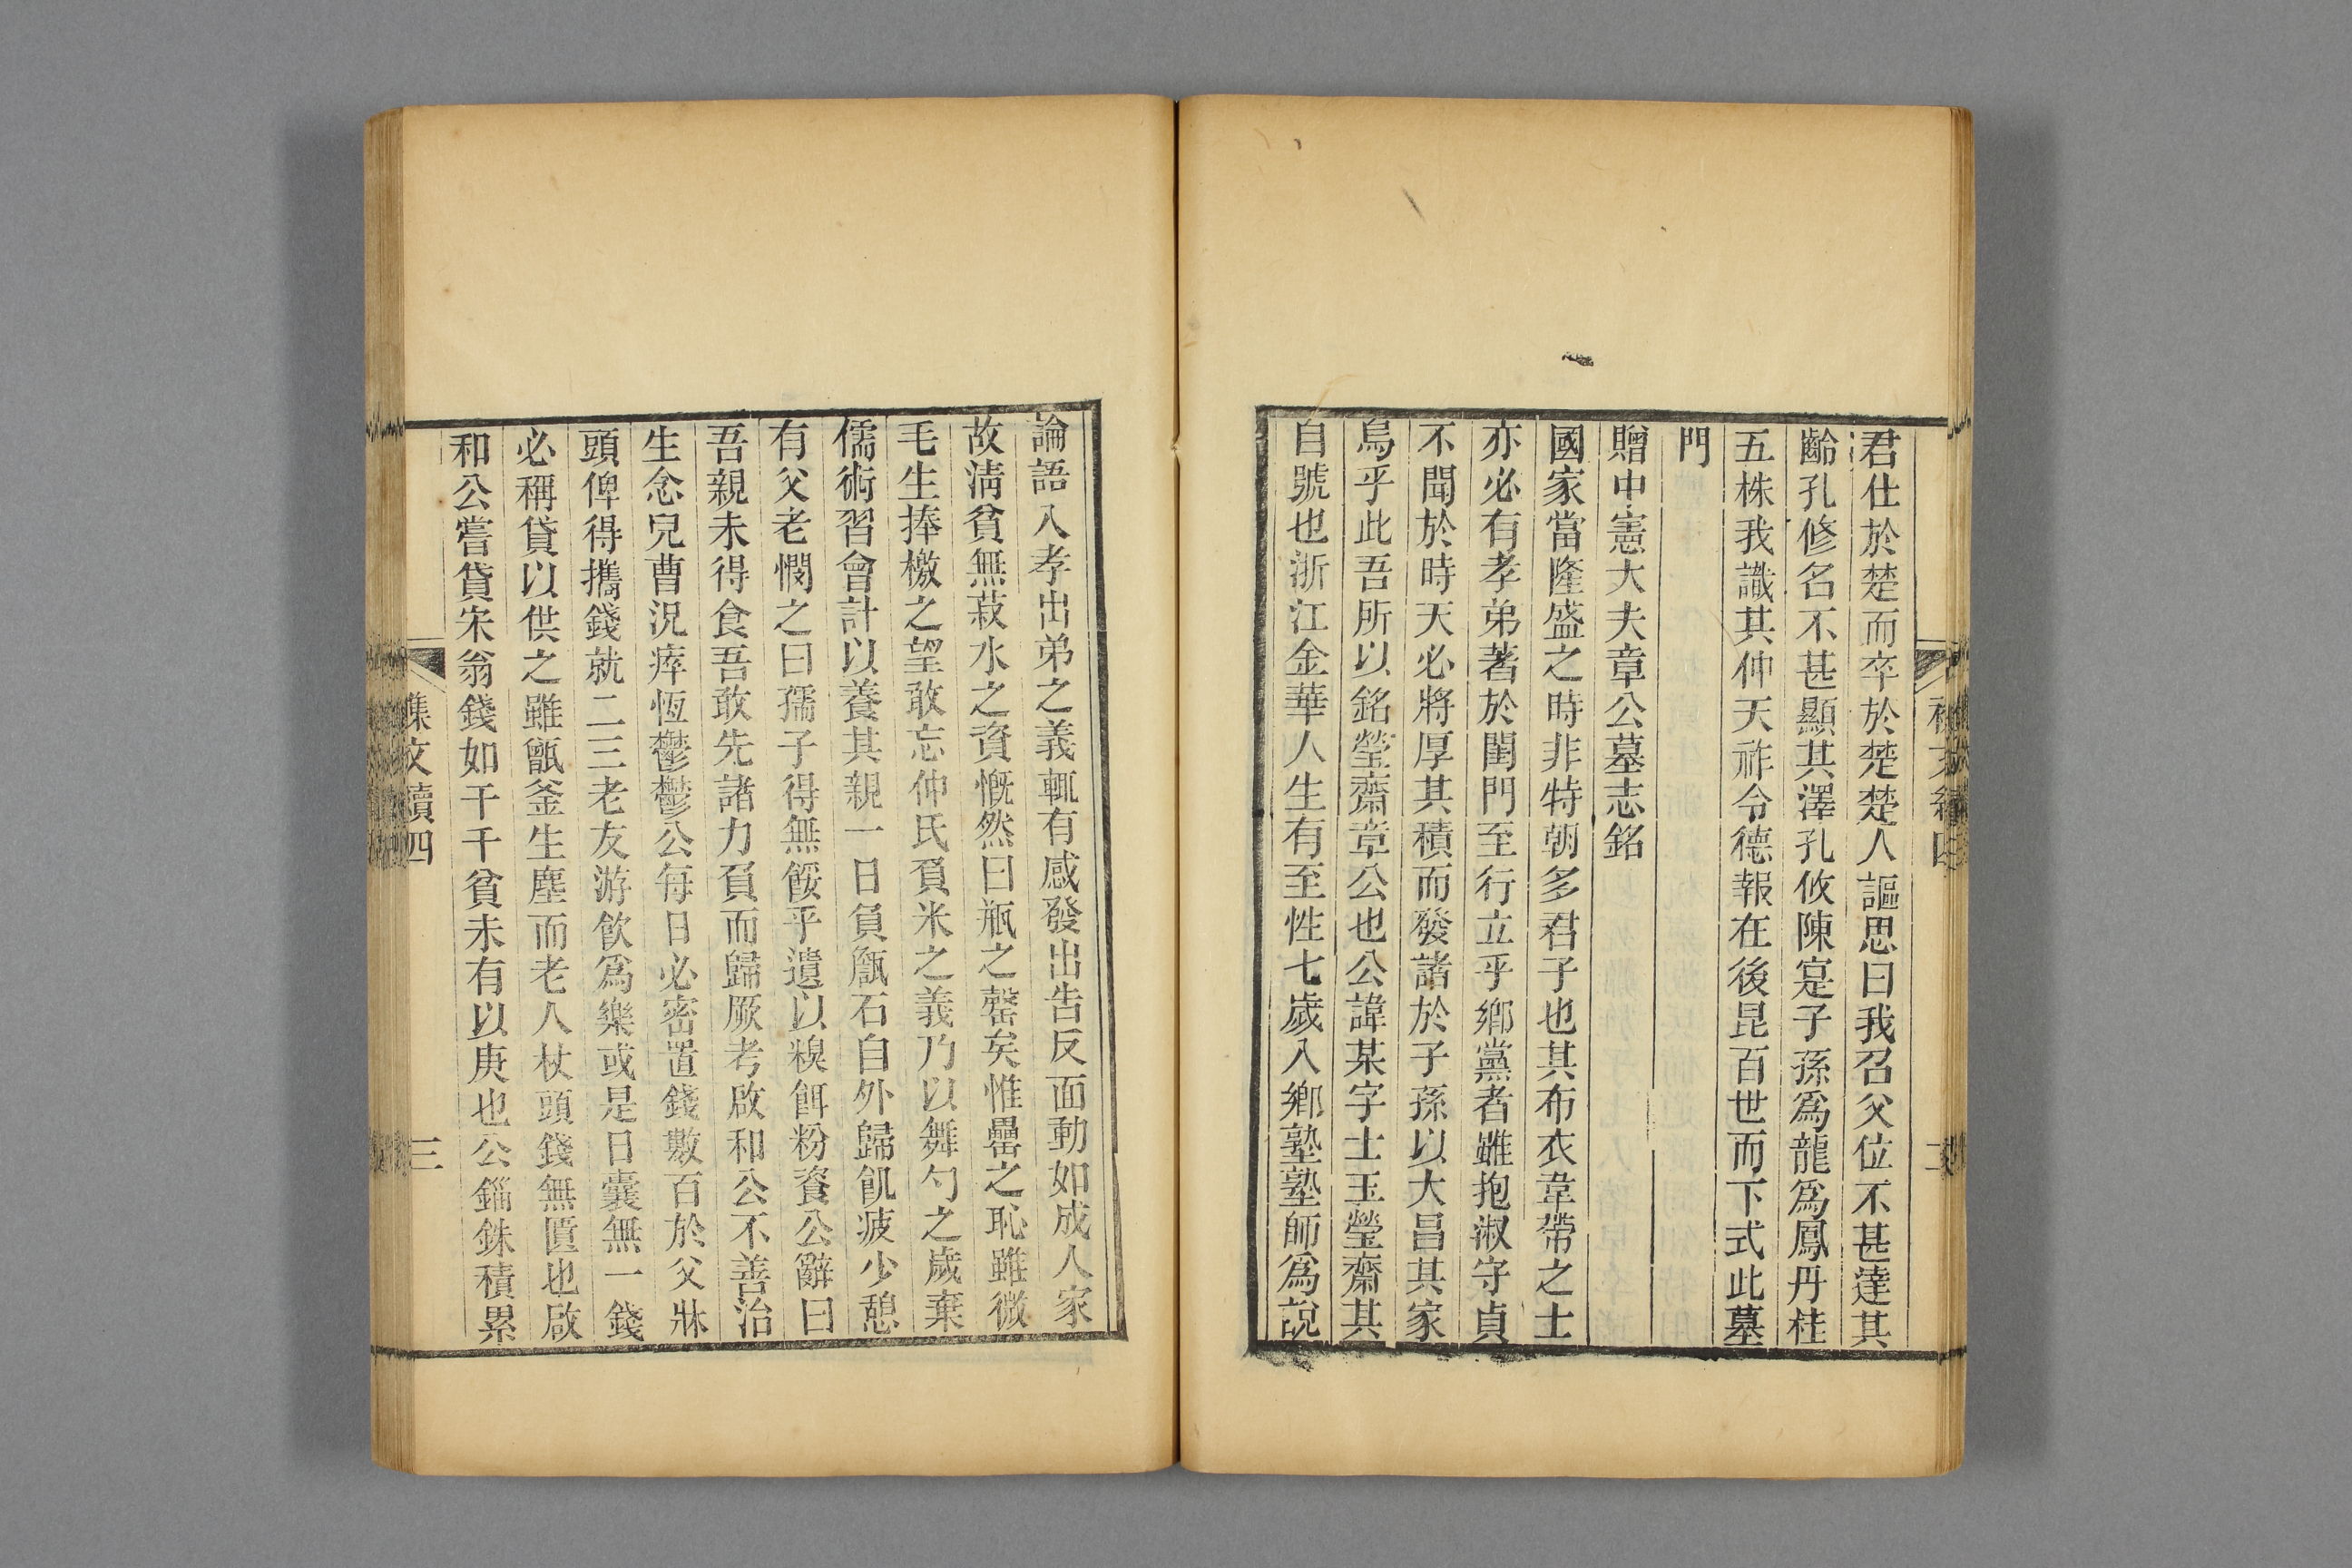 君仕於楚而卒於楚楚人謳思曰我召父位不甚達其
齡孔修名不甚顯其澤孔攸陳寔子孫爲龍爲鳳丹桂
五株我識其仲天祚令德報在後昆百世而下式此墓
門
贈中憲大夫章公墓志銘
國家當隆盛之時非特朝多君子也其布衣韋帶之士
亦必有孝弟著於閨門至行立乎鄉黨者雖抱淑守貞
不聞於時天必將厚其積而發諸於子孫以大昌其家
烏乎此吾所以銘瑩齋章公也公諱某字士玉瑩齋其
自號也浙江金華人生有至性七歲入鄉塾塾師爲說
論語入孝出弟之義輒有感發出告反面動如成人家
故淸貧無菽水之資慨然曰瓶之罄矣惟罍之恥雖微
毛生捧檄之望敢忘仲氏負米之義乃以舞勺之歲棄
儒術習會計以養其親一日負甔石自外歸飢疲少憩
有父老憫之曰孺子得無餒乎遺以糗餌粉餈公辭曰
吾親未得食吾敢先諸力負而歸厥考啟和公不善治
生念兒曹況瘁恆鬱鬱公每日必密置錢數百於父牀
頭俾得攜錢就二三老友游飮爲樂或是日囊無一錢
必稱貸以供之雖甑釜生塵而老人杖頭錢無匱也啟
和公嘗貸宋翁錢如干千貧未有以庚也公錙銖積累
集文續四
三